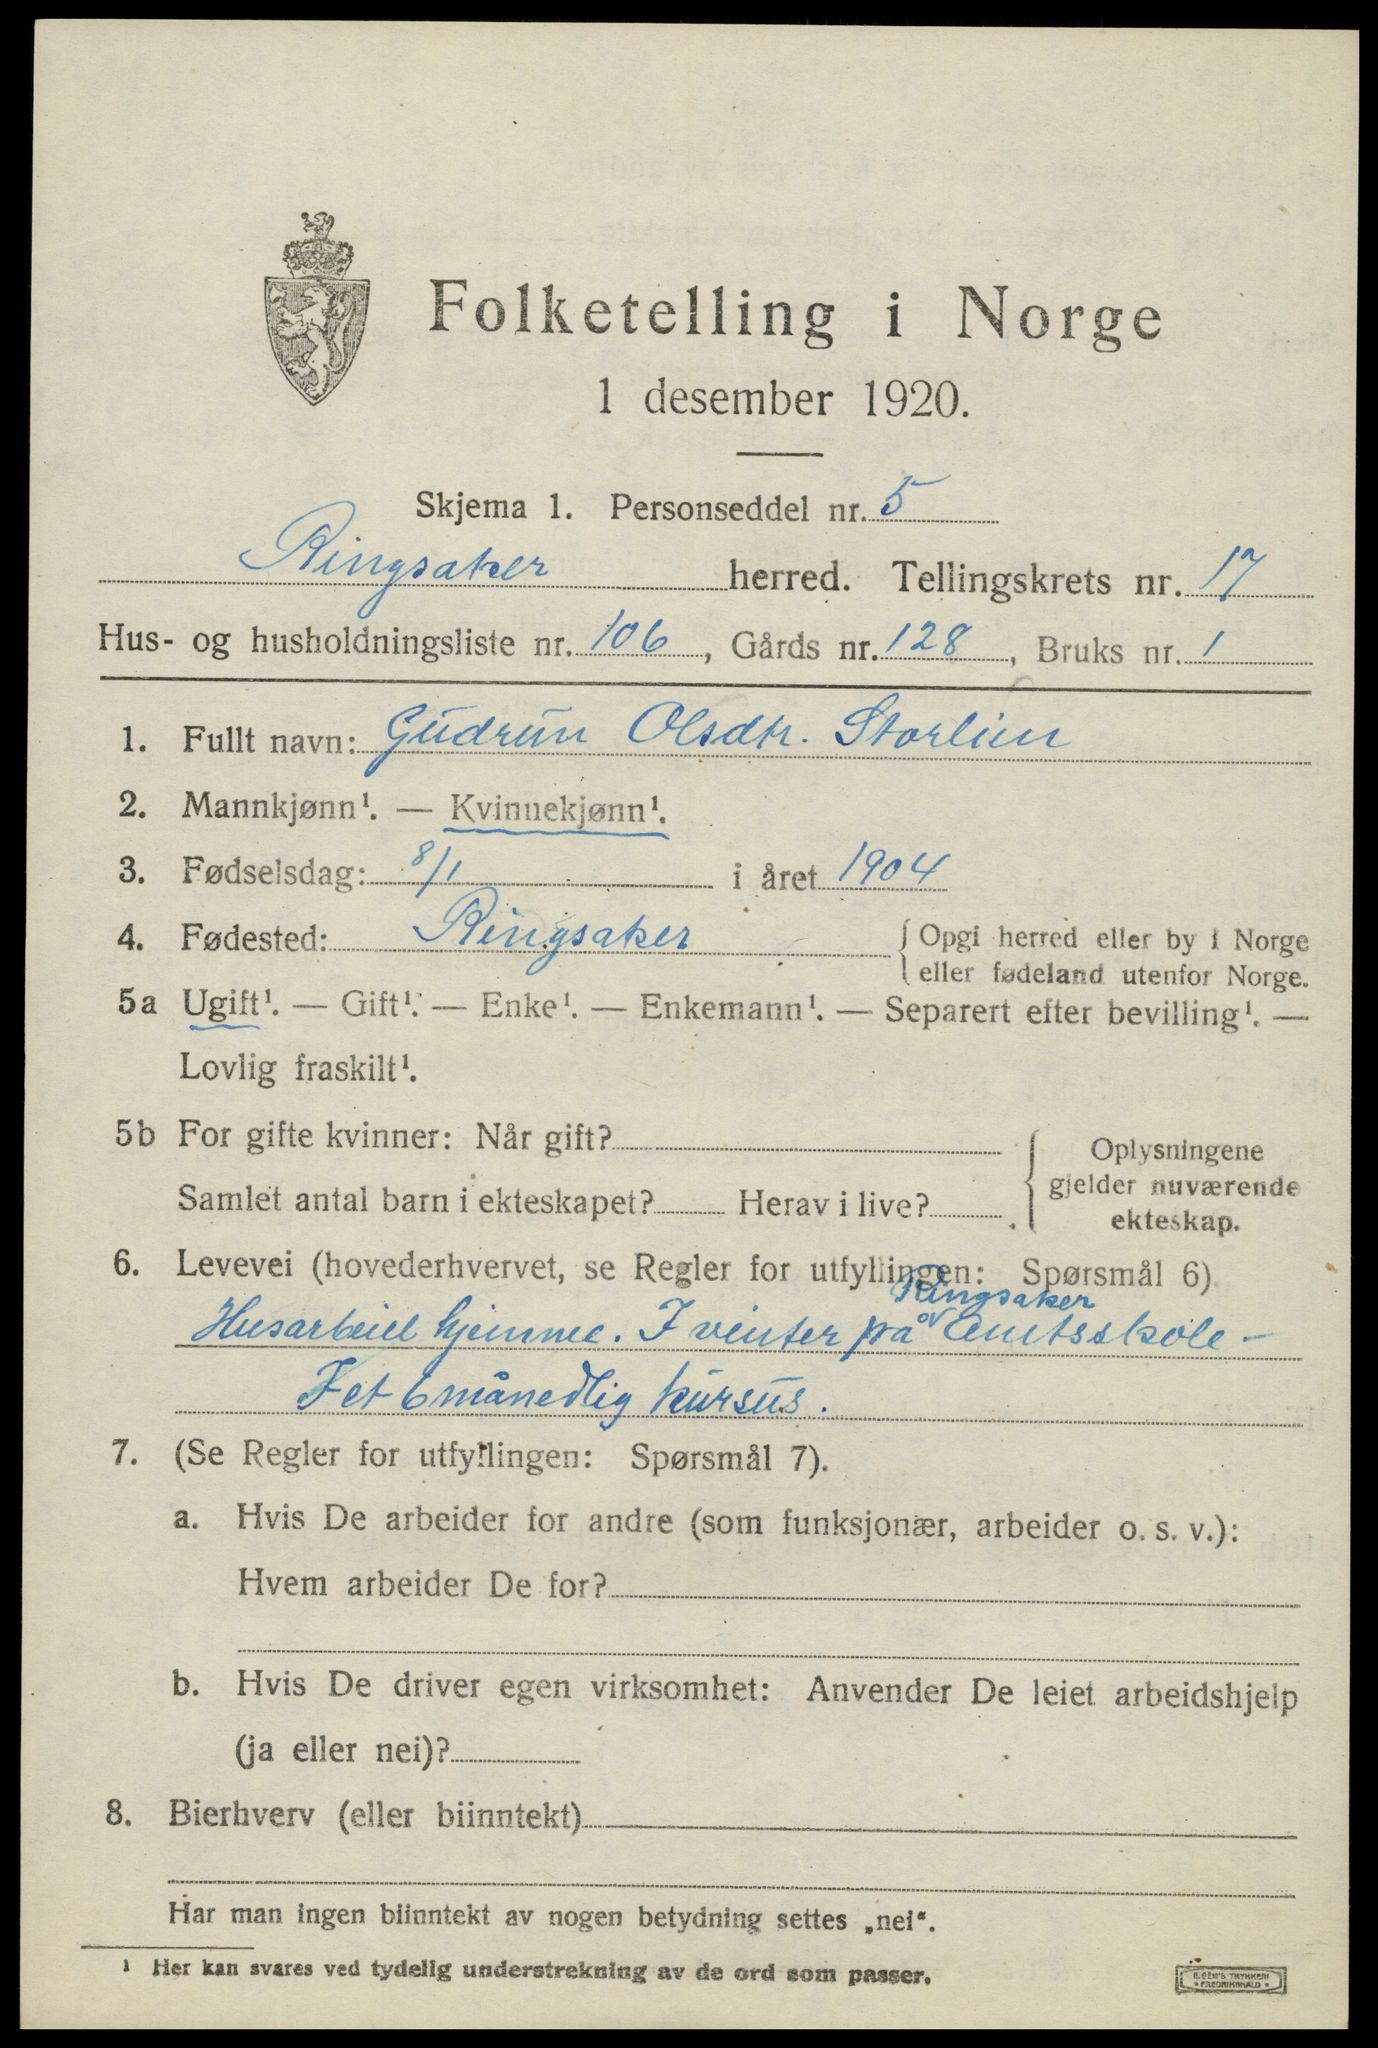 Folketelling i Norge
1 desember 1920.
Skjema 1. Personseddel nr. 5
Ringsaker herred. Tellingskrets nr. 17
Hus- og husholdningsliste nr. 106, Gårds nr. 128, Bruks nr. 1
1. Fullt navn: Gudrun Olsdtr. Storlien
2. Mannkjønn¹. — Kvinnekjønn¹.
3. Fødselsdag: 8/1 i året 1904
4. Fødested: Ringsaker { Opgi herred eller by i Norge
eller fødeland utenfor Norge.
5a Ugift¹. — Gift¹. — Enke¹. — Enkemann¹. — Separert efter bevilling¹. —
Lovlig fraskilt¹.
5b For gifte kvinner: Når gift?
Samlet antal barn i ekteskapet? Herav i live?
Oplysningene
gjelder nuværende
ekteskap.
6. Levevei (hovederhvervet, se Regler for utfyllingen: Spørsmål 6)
Ringsaker
Husarbeid hjemme. I vinter på Amtsskole –
I et 6 månedlig kursus.
7. (Se Regler for utfyllingen: Spørsmål 7).
a. Hvis De arbeider for andre (som funksjonær, arbeider o. s. v.):
Hvem arbeider De for?
b. Hvis De driver egen virksomhet: Anvender De leiet arbeidshjelp
(ja eller nei)?
8. Bierhverv (eller biinntekt)
Har man ingen biinntekt av nogen betydning settes „nei“.
¹ Her kan svares ved tydelig understrekning av de ord som passer.
TRYKKERI
FREDRIKSHALD